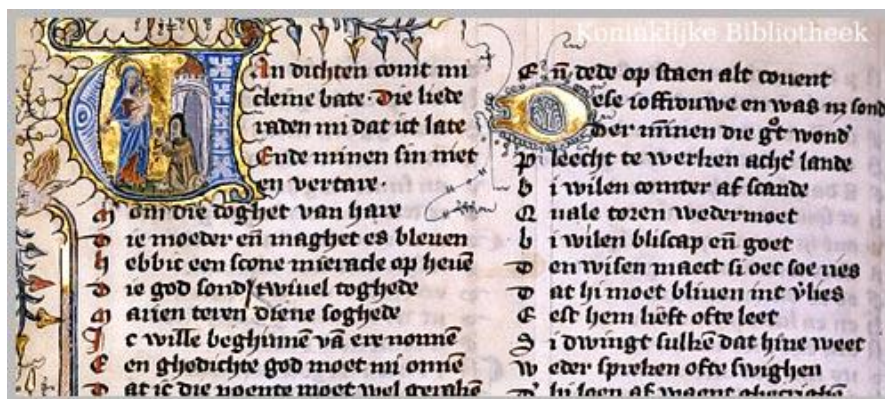 Koninklijke Bibliotheek
Van dichten comt mi
cleine bate· Die liede
raden mi dat ict late
Ende minen sin niet
en vertare·
om die doghet van hare
Die moeder en̄ maghet es bleuen
hebbic een scone mieracle op heuē
Die god sond' twiuel toghede
Marien teren diene soghede
Ic wille beghinnē vā ere nonnē
Een ghedichte god moet mi onnē
Dat ic die poente moet wel gerakē
En̄ dede op staen alt couent
Dese ioffrouwe en was nz sond
Der mīnen die gͦt wond'
pleecht te werken acht' lande
bi wilen comter af scande
Quale toren wedermoet
bi wilen bliscap en̄ goet
Den wisen maect si oec soe ries
Dat hi moet bliuen int v'lies
Eest hem lieft ofte leet
Si dwingt sulkē dat hine weet
weder spreken ofte swighen
D' hi loen af waent ghecrighēn